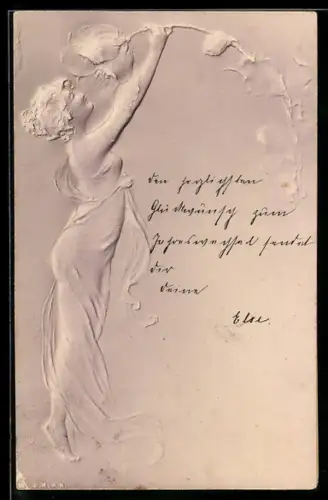 den herzlichsten
Glückwunsch zum
Jahreswechsel sendet
dir
deine
Else.